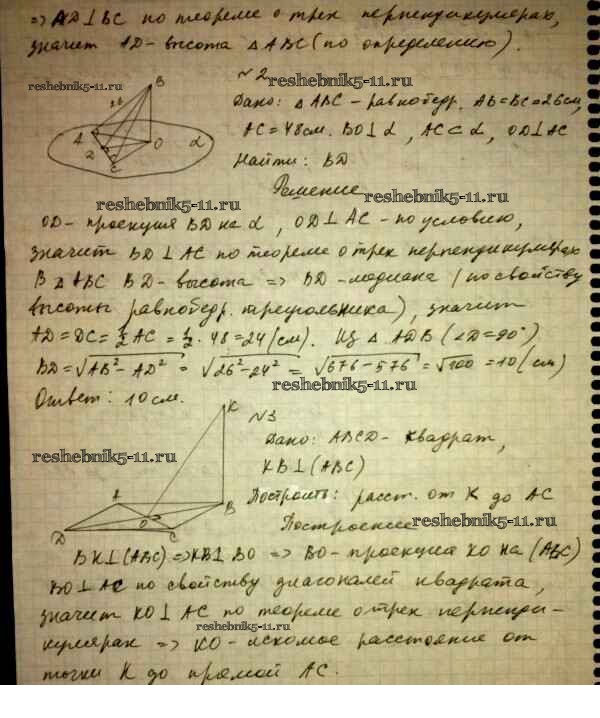 ⇒ AD⊥BC по теореме о трех перпендикулярах,
значит AD - высота △ABC (по определению).
reshebnik5-11.ru
№2
reshebnik5-11.ru
Дано: △ABC - равнобедр. AB=BC=26см,
AC=48см. BO⊥α, AC⊂α, OD⊥AC
Найти: BD
B
26
A
O
α
C
reshebnik5-11.ru
Решение
reshebnik5-11.ru
OD - проекция BD на α, OD⊥AC - по условию,
значит BD⊥AC по теореме о трех перпендикулярах
В △ABC BD - высота ⇒ BD - медиана (по свойству
высоты равнобедр. треугольника), значит
AD=DC=½AC=½·48=24(см). Из △ADB (∠D=90°)
BD=√AB²-AD² = √26²-24² = √676-576 = √100 = 10(см)
reshebnik5-11.ru
Ответ: 10см.
№3
K
Дано: ABCD - квадрат,
reshebnik5-11.ru
KB⊥(ABC)
Построить: расст. от K до AC
Построение
reshebnik5-11.ru
A
B
O
D
C
BK⊥(ABC)⇒KB⊥BO ⇒ BO - проекция KO на (ABC)
BO⊥AC по свойству диагоналей квадрата,
значит KO⊥AC по теореме о трех перпенди-
reshebnik5-11.ru
кулярах ⇒ KO - искомое расстояние от
точки K до прямой AC.